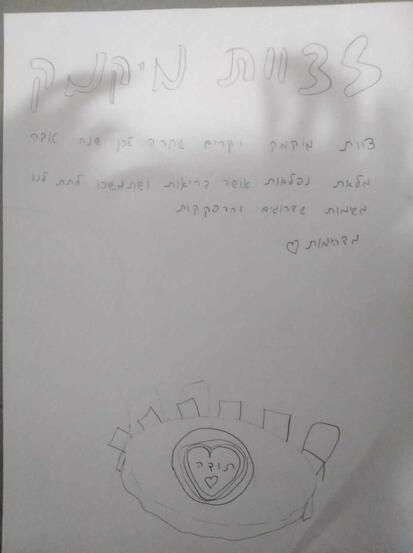 לצוות מיקמק
צוות מיקמק יקרים שתהיה לכן שנה טובה
מלאת נפלאות אושר בריאות ושתמשכו לתת לנו
משמות שדרוגים והרפקאות
מדהימות ♡
תודה